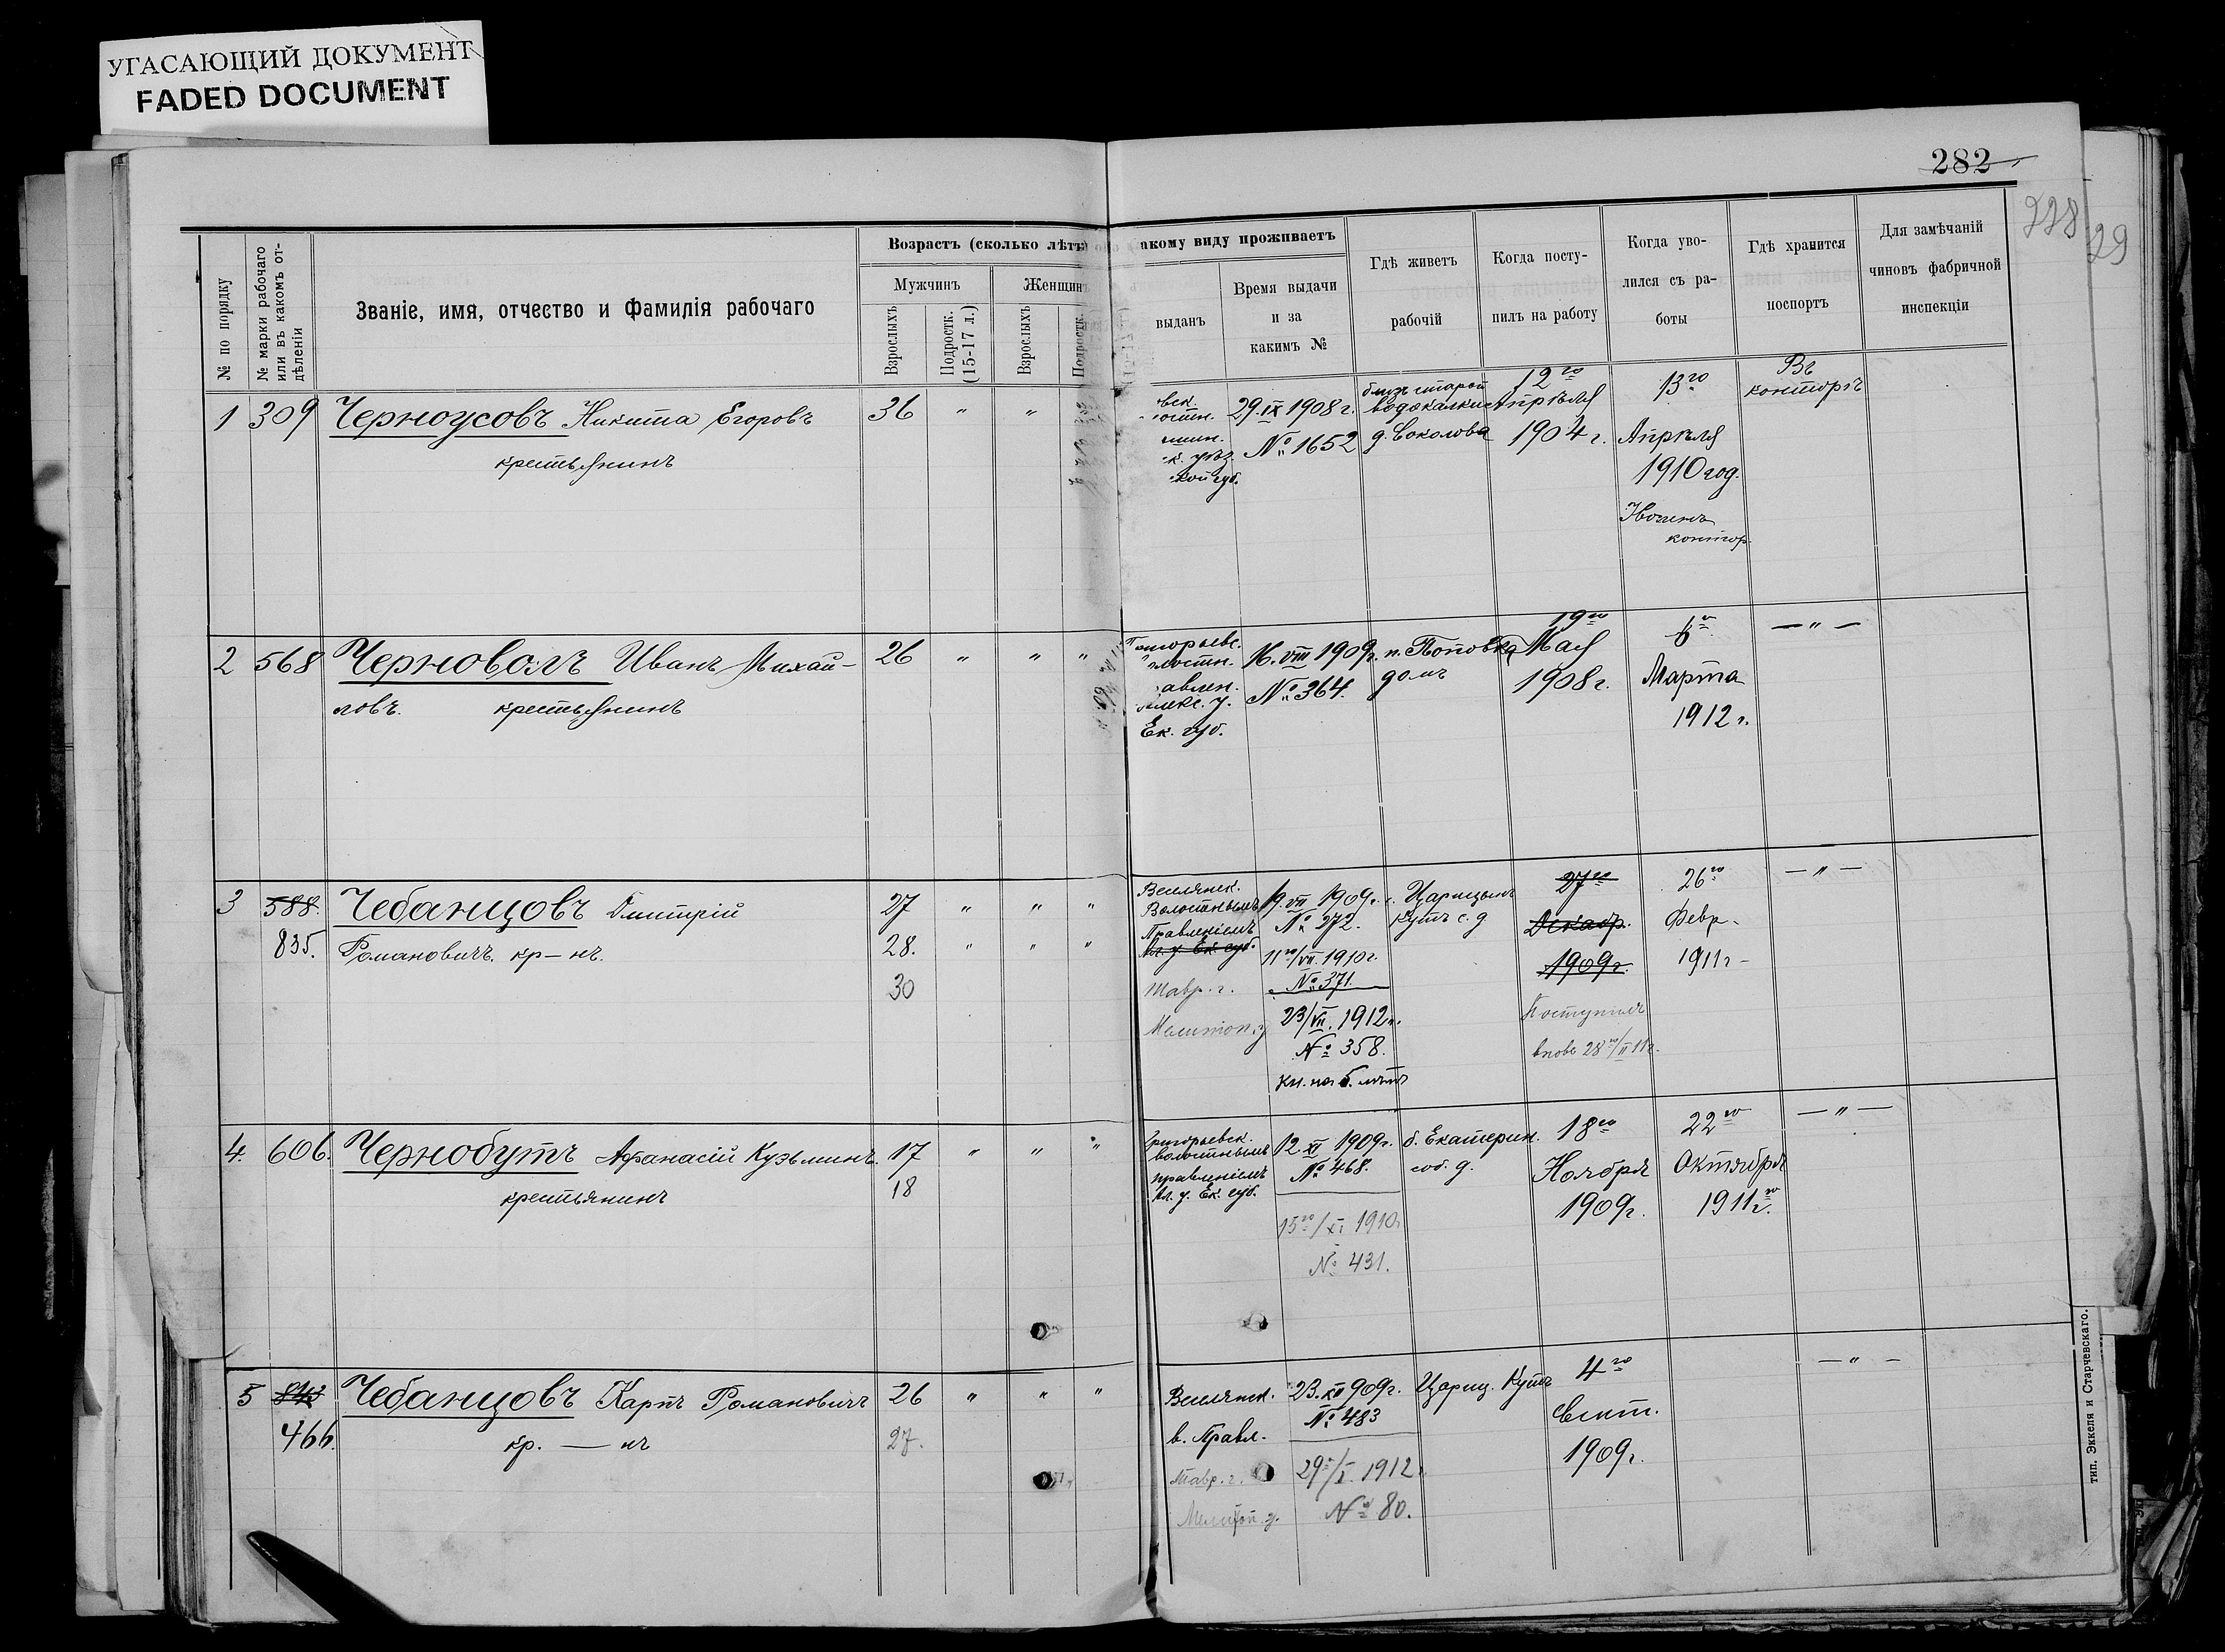 УГАСАЮЩИЙ ДОКУМЕНТ
FADED DOCUMENT
282
228
29
№ по порядку
№ марки рабочаго
или въ какомъ от-
дѣленіи
Званіе, имя, отчество и фамилія рабочаго
Возрастъ (сколько лѣтъ)
Мужчинъ
Женщин
Взрослыхъ
Подростк.
(15-17 л.)
Взрослыхъ
Подростк.
акому виду проживаетъ
выданъ
Время выдачи
и за
какимъ №
Гдѣ живетъ
рабочій
Когда посту-
пилъ на работу
Когда уво-
лился съ ра-
боты
Гдѣ хранится
поспортъ
Для замѣчаній
чиновъ фабричной
инспекціи
1 309 Черноусовъ Никита Егоровъ 36 " "
крестьянинъ
овск.
остн.
к. уѣз.
кой губ.
29.IX 1908 г.
№ 1652
близъ старой
водокачки
д. Соколова
12го
Апрѣля
1904 г.
13го
Апрѣля
1910 год.
контор.
Въ
конторѣ
2 568 Черноволъ Иванъ Михай- 26 " " "
ловъ. крестьянинъ
Григорьевс.
олостн.
равлен.
Алекс. у.
Ек. губ.
16. VIII 1909 г.
№ 364.
п. Поповка
домъ
19го
Мая
1908 г.
6го
Марта
1912 г.
— " —
3 588. Чебанцовъ Дмитрій 27 " " "
835. Романовичъ. кр-нъ. 28. " " "
30
Веселянск.
Волостнымъ
Правленіемъ
Ал. у. Ек. губ.
Тавр. г.
Мелитоп. у
19. VII 1909 г.
№ 272.
11го/VII. 1910 г.
№ 371.
23/VII. 1912 г.
№ 358.
кн. на 5. лѣтъ
с. Царицынъ
Кутъ с. д
27го
Декабр.
1909 г.
Поступилъ
вновь 28го/II 11 г.
26го
Февр.
1911 г -
— " —
4. 606. Чернобутъ Афанасій Кузьминъ. 17 " " "
крестьянинъ 18
Григорьевск.
волостнымъ
правленіемъ
Ал. у. Ек. губ.
12 XI 1909 г.
№ 468.
15го/XI 1910 г
№ 431.
б. Екатерин.
соб. д.
18го
Ноября
1909 г.
22го
Октября
1911 г.
— " —
5 843 Чебанцовъ Карпъ Романовичъ 26 " " "
466. кр. — нъ 27.
Веселянск.
в. Правл.
Тавр. г.
Мелитоп. у.
23. XII 909 г.
№ 483
29го/I. 1912
№ 80.
Цариц. Кутъ
4го
Сент.
1909 г.
— " —
тип. Эккеля и Старчевскаго.